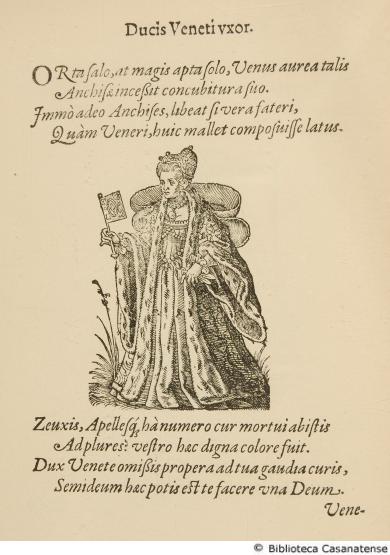 Ducis Veneti vxor.
ORta salo, at magis apta solo, Venus aurea talis
Anchisæ incessit concubitura suo.
Immò adeo Anchises, libeat si vera fateri,
Quàm Veneri, huic mallet composuisse latus.
Zeuxis, Apellesq́; hà numero cur mortui abistis
Ad plures? vestro hæc digna colore fuit.
Dux Venete omißis propera ad tua gaudia curis,
Semideum hæc potis est te facere vna Deum.
Vene-
© Biblioteca Casanatense